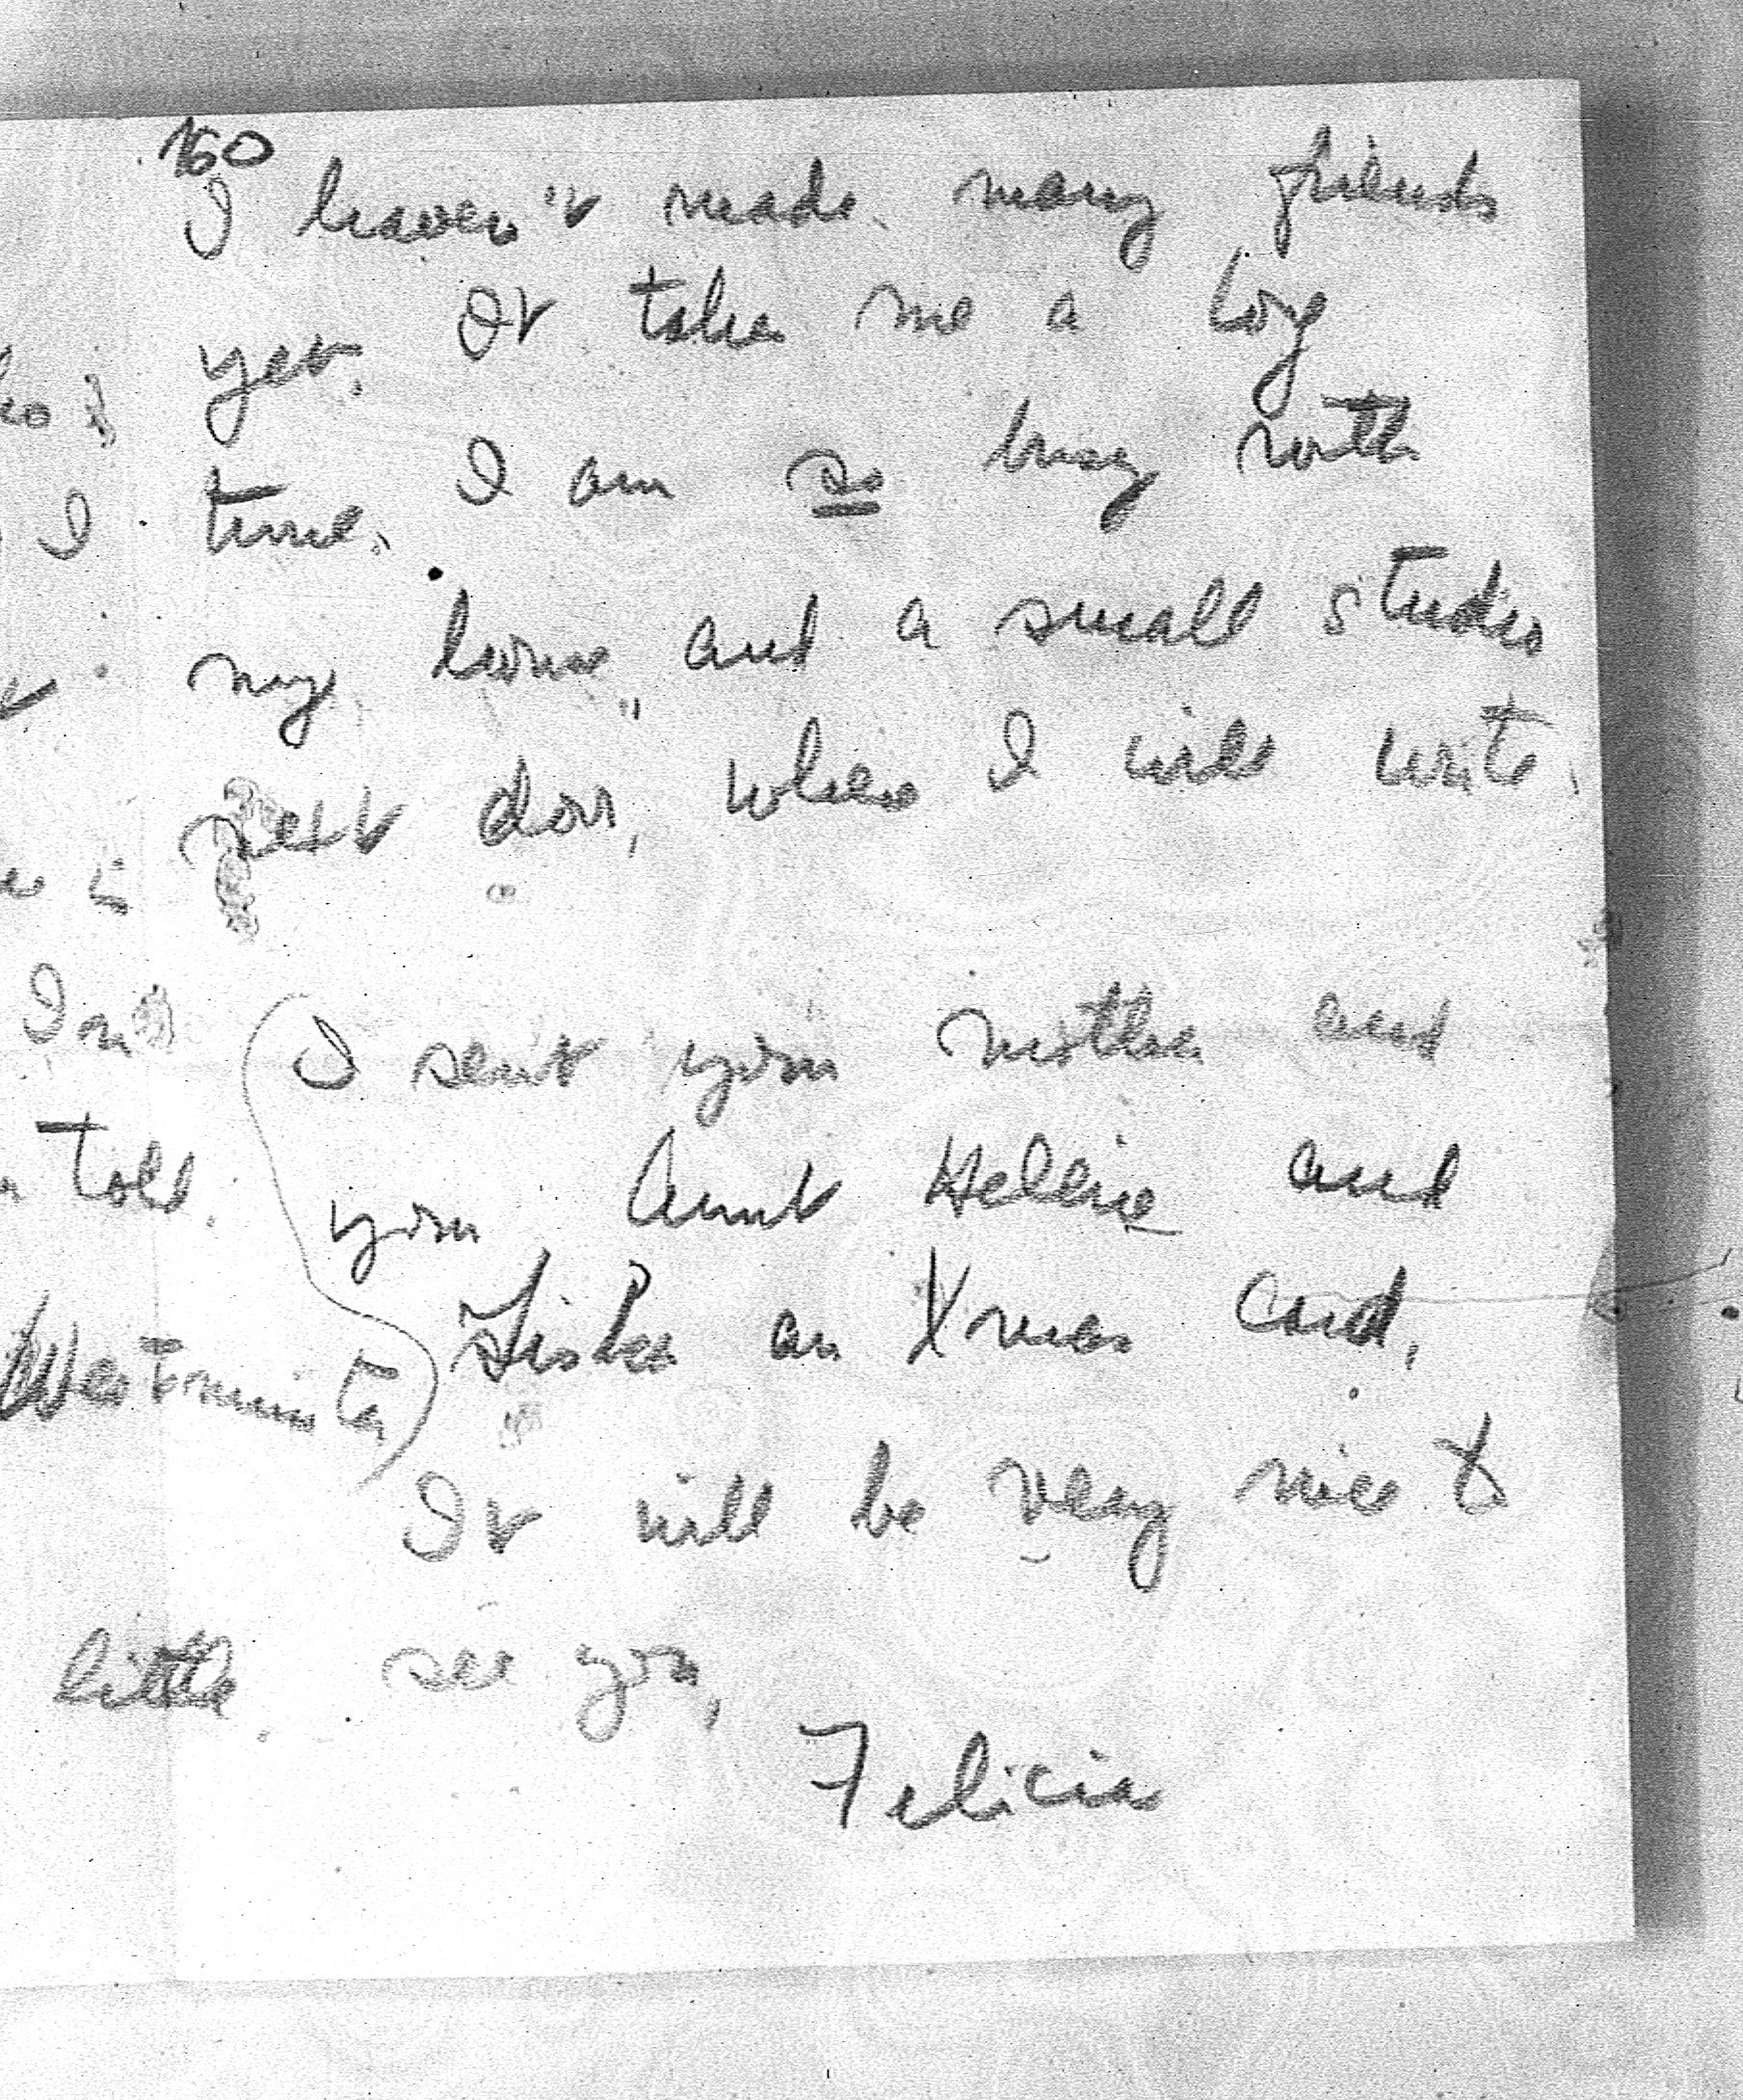 160
I haven't made many friends
yet. It takes me a long
time. I am so busy with
my home, and a small studio
next door, where I will write.
I sent your mother and
your Aunt Hellie and
Sister an Xmas card.
It will be very nice to
see you,
Felicia
I
In
told.
Westminster
little